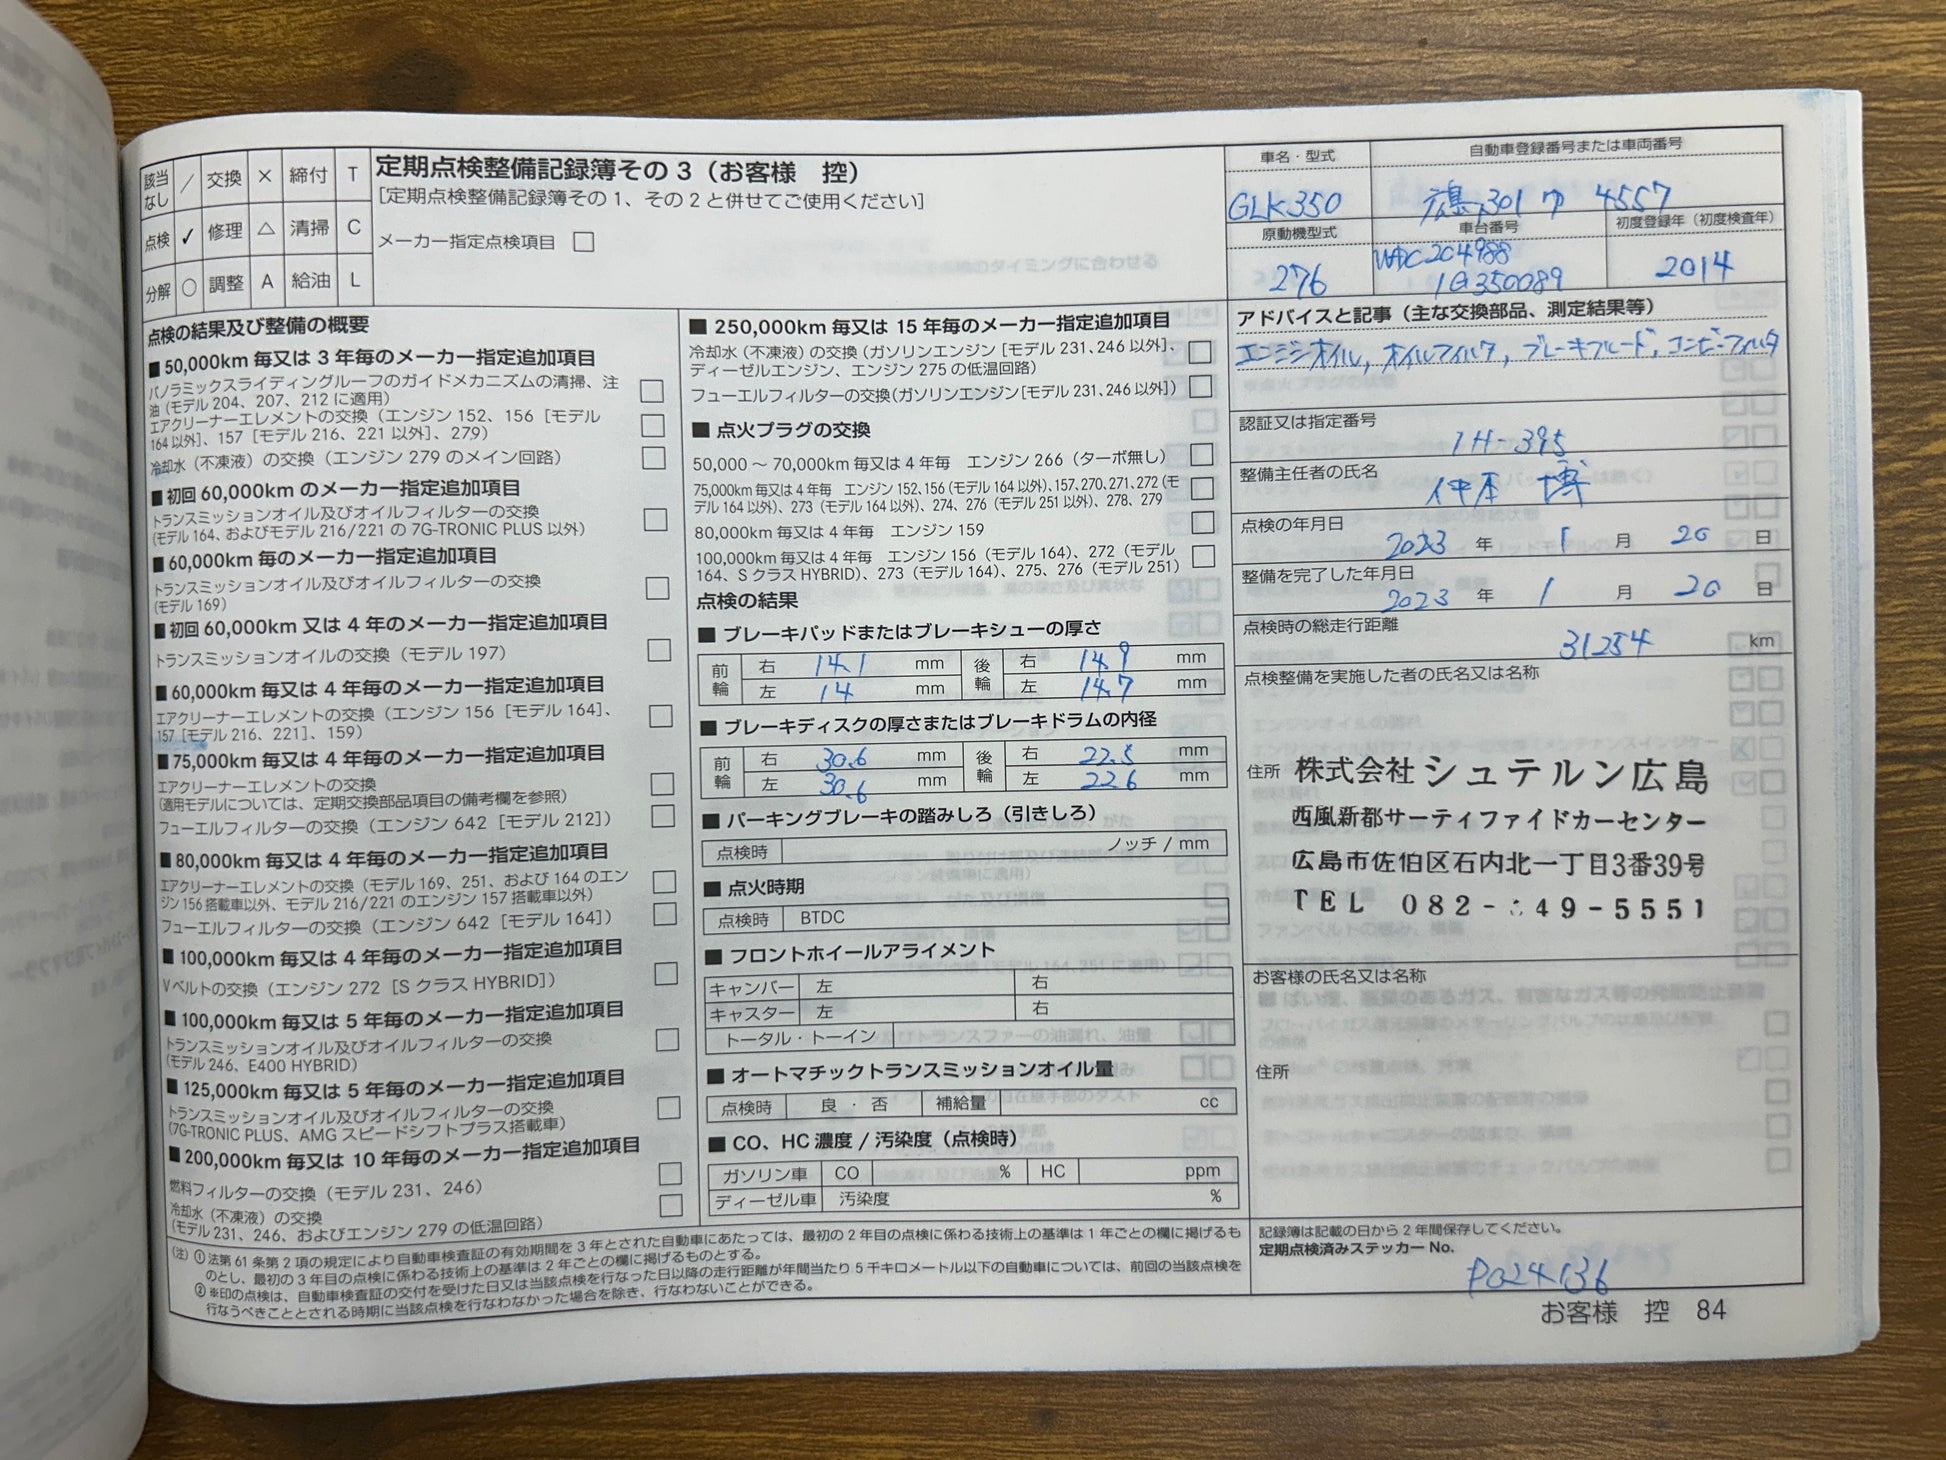 該当なし ／ 交換 × 締付 T
点検 ✓ 修理 △ 清掃 C
分解 ○ 調整 A 給油 L
定期点検整備記録簿その3（お客様 控）
[定期点検整備記録簿その1、その2と併せてご使用ください]
メーカー指定点検項目 □
車名・型式
GLK350
自動車登録番号または車両番号
広島 301 ゆ 4557
原動機型式
276
車台番号
WDC204988
1G350089
初度登録年（初度検査年）
2014
点検の結果及び整備の概要
■ 50,000km 毎又は 3 年毎のメーカー指定追加項目
パノラミックスライディングルーフのガイドメカニズムの清掃、注
油（モデル 204、207、212 に適用） □
エアクリーナーエレメントの交換（エンジン 152、156［モデル
164 以外］、157［モデル 216、221 以外］、279） □
冷却水（不凍液）の交換（エンジン 279 のメイン回路） □
■ 初回 60,000km のメーカー指定追加項目
トランスミッションオイル及びオイルフィルターの交換
（モデル 164、およびモデル 216/221 の 7G-TRONIC PLUS 以外） □
■ 60,000km 毎のメーカー指定追加項目
トランスミッションオイル及びオイルフィルターの交換
（モデル 169） □
■ 初回 60,000km 又は 4 年のメーカー指定追加項目
トランスミッションオイルの交換（モデル 197） □
■ 60,000km 毎又は 4 年毎のメーカー指定追加項目
エアクリーナーエレメントの交換（エンジン 156［モデル 164］、
157［モデル 216、221］、159） □
■ 75,000km 毎又は 4 年毎のメーカー指定追加項目
エアクリーナーエレメントの交換
（適用モデルについては、定期交換部品項目の備考欄を参照） □
フューエルフィルターの交換（エンジン 642［モデル 212］） □
■ 80,000km 毎又は 4 年毎のメーカー指定追加項目
エアクリーナーエレメントの交換（モデル 169、251、および 164 のエン
ジン 156 搭載車以外、モデル 216/221 のエンジン 157 搭載車以外） □
フューエルフィルターの交換（エンジン 642［モデル 164］） □
■ 100,000km 毎又は 4 年毎のメーカー指定追加項目
V ベルトの交換（エンジン 272［S クラス HYBRID］） □
■ 100,000km 毎又は 5 年毎のメーカー指定追加項目
トランスミッションオイル及びオイルフィルターの交換
（モデル 246、E400 HYBRID） □
■ 125,000km 毎又は 5 年毎のメーカー指定追加項目
トランスミッションオイル及びオイルフィルターの交換
（7G-TRONIC PLUS、AMG スピードシフトプラス搭載車） □
■ 200,000km 毎又は 10 年毎のメーカー指定追加項目
燃料フィルターの交換（モデル 231、246） □
冷却水（不凍液）の交換
（モデル 231、246、およびエンジン 279 の低温回路） □
■ 250,000km 毎又は 15 年毎のメーカー指定追加項目
冷却水（不凍液）の交換（ガソリンエンジン［モデル 231、246 以外］、
ディーゼルエンジン、エンジン 275 の低温回路） □
フューエルフィルターの交換（ガソリンエンジン［モデル 231、246 以外］） □
■ 点火プラグの交換
50,000 ～ 70,000km 毎又は 4 年毎 エンジン 266（ターボ無し） □
75,000km 毎又は 4 年毎 エンジン 152、156（モデル 164 以外）、157、270、271、272（モ
デル 164 以外）、273（モデル 164 以外）、274、276（モデル 251 以外）、278、279 □
80,000km 毎又は 4 年毎 エンジン 159 □
100,000km 毎又は 4 年毎 エンジン 156（モデル 164）、272（モデル
164、S クラス HYBRID）、273（モデル 164）、275、276（モデル 251） □
点検の結果
■ ブレーキパッドまたはブレーキシューの厚さ
前輪 右 14.1 mm 後輪 右 14.9 mm
左 14 mm 左 14.7 mm
■ ブレーキディスクの厚さまたはブレーキドラムの内径
前輪 右 30.6 mm 後輪 右 22.5 mm
左 30.6 mm 左 22.6 mm
■ パーキングブレーキの踏みしろ（引きしろ）
点検時 ノッチ / mm
■ 点火時期
点検時 BTDC
■ フロントホイールアライメント
キャンバー 左 右
キャスター 左 右
トータル・トーイン
■ オートマチックトランスミッションオイル量
点検時 良 ・ 否 補給量 cc
■ CO、HC 濃度 / 汚染度（点検時）
ガソリン車 CO % HC ppm
ディーゼル車 汚染度 %
アドバイスと記事（主な交換部品、測定結果等）
エンジンオイル, オイルフィルタ, ブレーキフルード, コンビーフィルタ
認証又は指定番号
1H-395
整備主任者の氏名
仲本 博
点検の年月日
2023 年 1 月 20 日
整備を完了した年月日
2023 年 1 月 20 日
点検時の総走行距離
31254 km
点検整備を実施した者の氏名又は名称
住所 株式会社シュテルン広島
西風新都サーティファイドカーセンター
広島市佐伯区石内北一丁目3番39号
TEL 082- 49-5551
お客様の氏名又は名称
住所
（注）① 法第 61 条第 2 項の規定により自動車検査証の有効期間を 3 年とされた自動車にあたっては、最初の 2 年目の点検に係わる技術上の基準は 1 年ごとの欄に掲げるも
のとし、最初の 3 年目の点検に係わる技術上の基準は 2 年ごとの欄に掲げるものとする。
② ※印の点検は、自動車検査証の交付を受けた日又は当該点検を行なった日以降の走行距離が年間当たり 5 千キロメートル以下の自動車については、前回の当該点検を
行なうべきこととされる時期に当該点検を行なわなかった場合を除き、行なわないことができる。
記録簿は記載の日から 2 年間保存してください。
定期点検済みステッカー No.
P024136
お客様 控 84